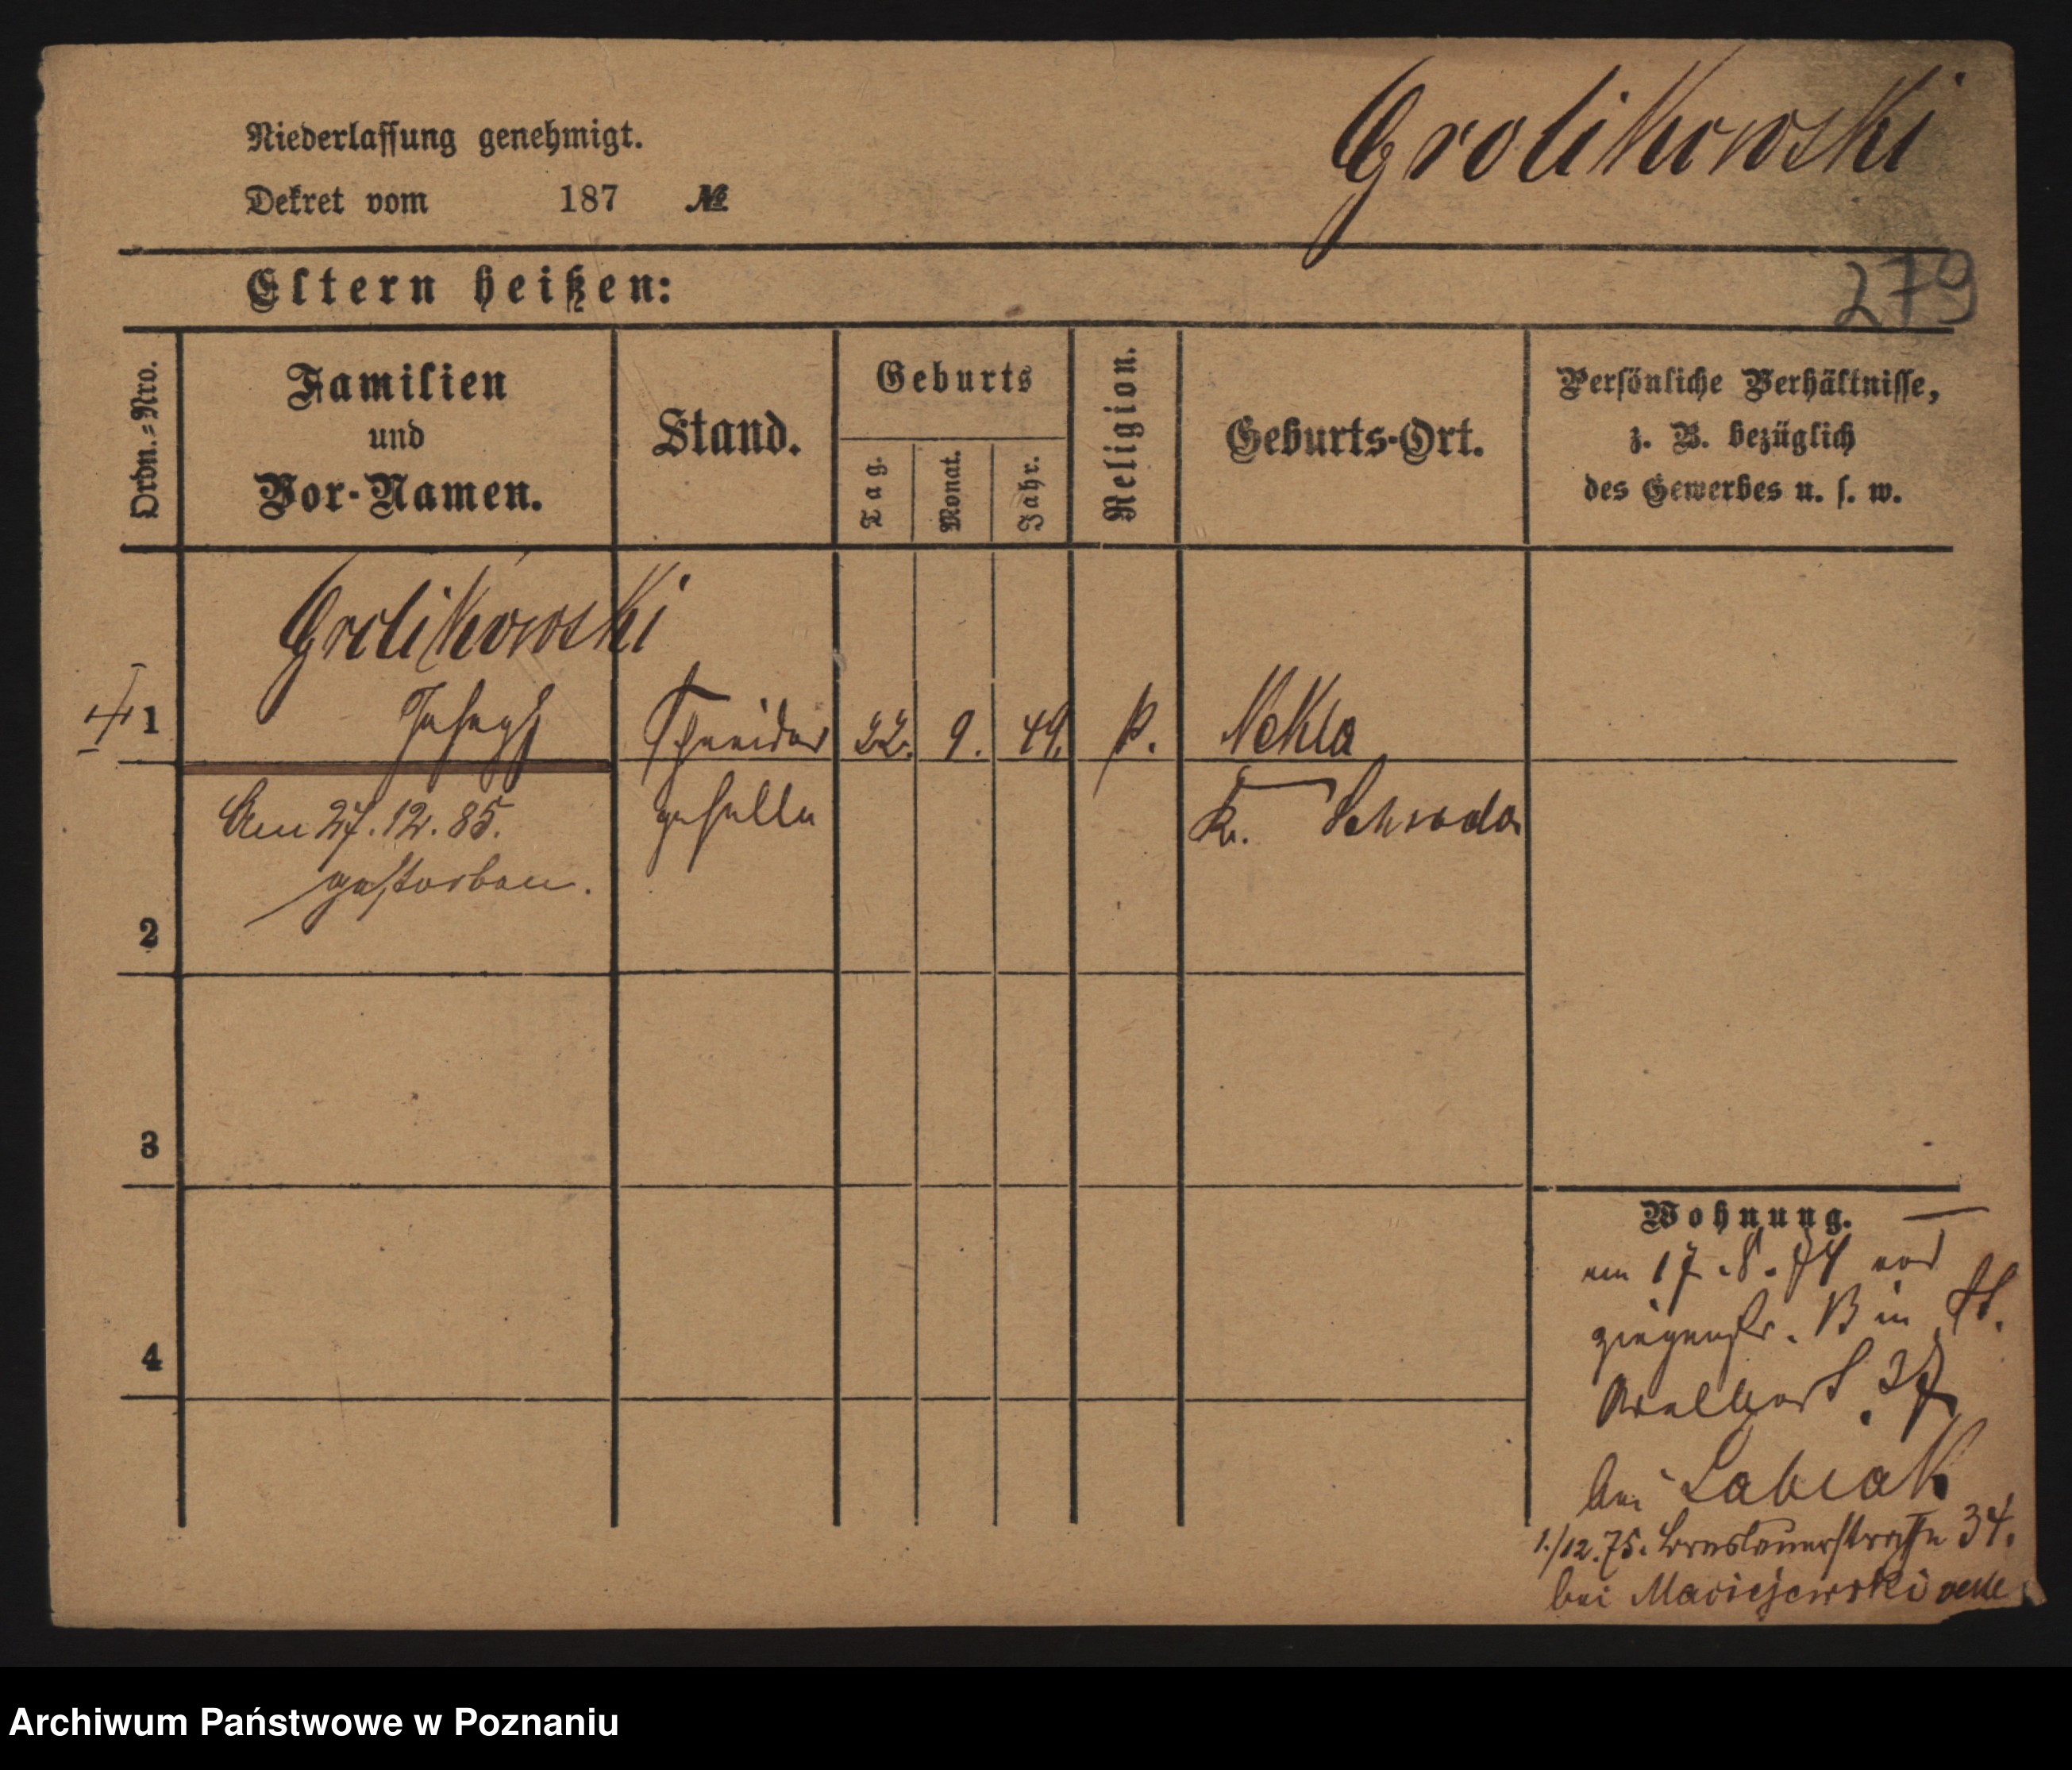 Grolikowski
Niederlassung genehmigt.
Dekret vom 187 №
279
Eltern heißen:
Ordn.-Nro.
Familien und Vor-Namen.
Stand.
Geburts
Tag.
Monat.
Jahr.
Religion.
Geburts-Ort.
Persönliche Verhältnisse,
z. B. bezüglich
des Gewerbes u. s. w.
Grolikowski
1 Joseph Schneider 22. 9. 49. k. Nekla
Am 27.12.85. geselle Kr. Schroda
gestorben.
2
3
4
Wohnung.
am 17.8.74 von
Ziegenstr. B in
37
bei Labiak
1./12.75. Breslauerstraße 34.
bei Maciejewski
Archiwum Państwowe w Poznaniu